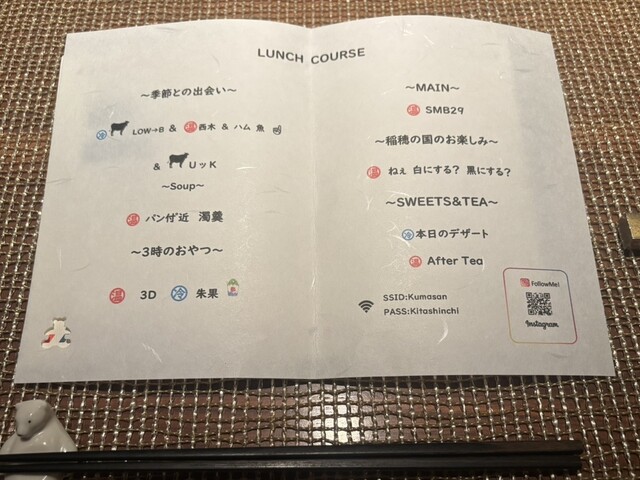 LUNCH COURSE
～季節との出会い～
冷 LOW→B & 温 西木 & ハム 魚
& UッK
～Soup～
温 パン付近 濁羹
～3時のおやつ～
温 3D 冷 朱果
～MAIN～
温 SMB29
～稲穂の国のお楽しみ～
温 ねぇ 白にする？ 黒にする？
～SWEETS&TEA～
冷 本日のデザート
温 After Tea
SSID:Kumasan
PASS:Kitashinchi
FollowMe!
Instagram